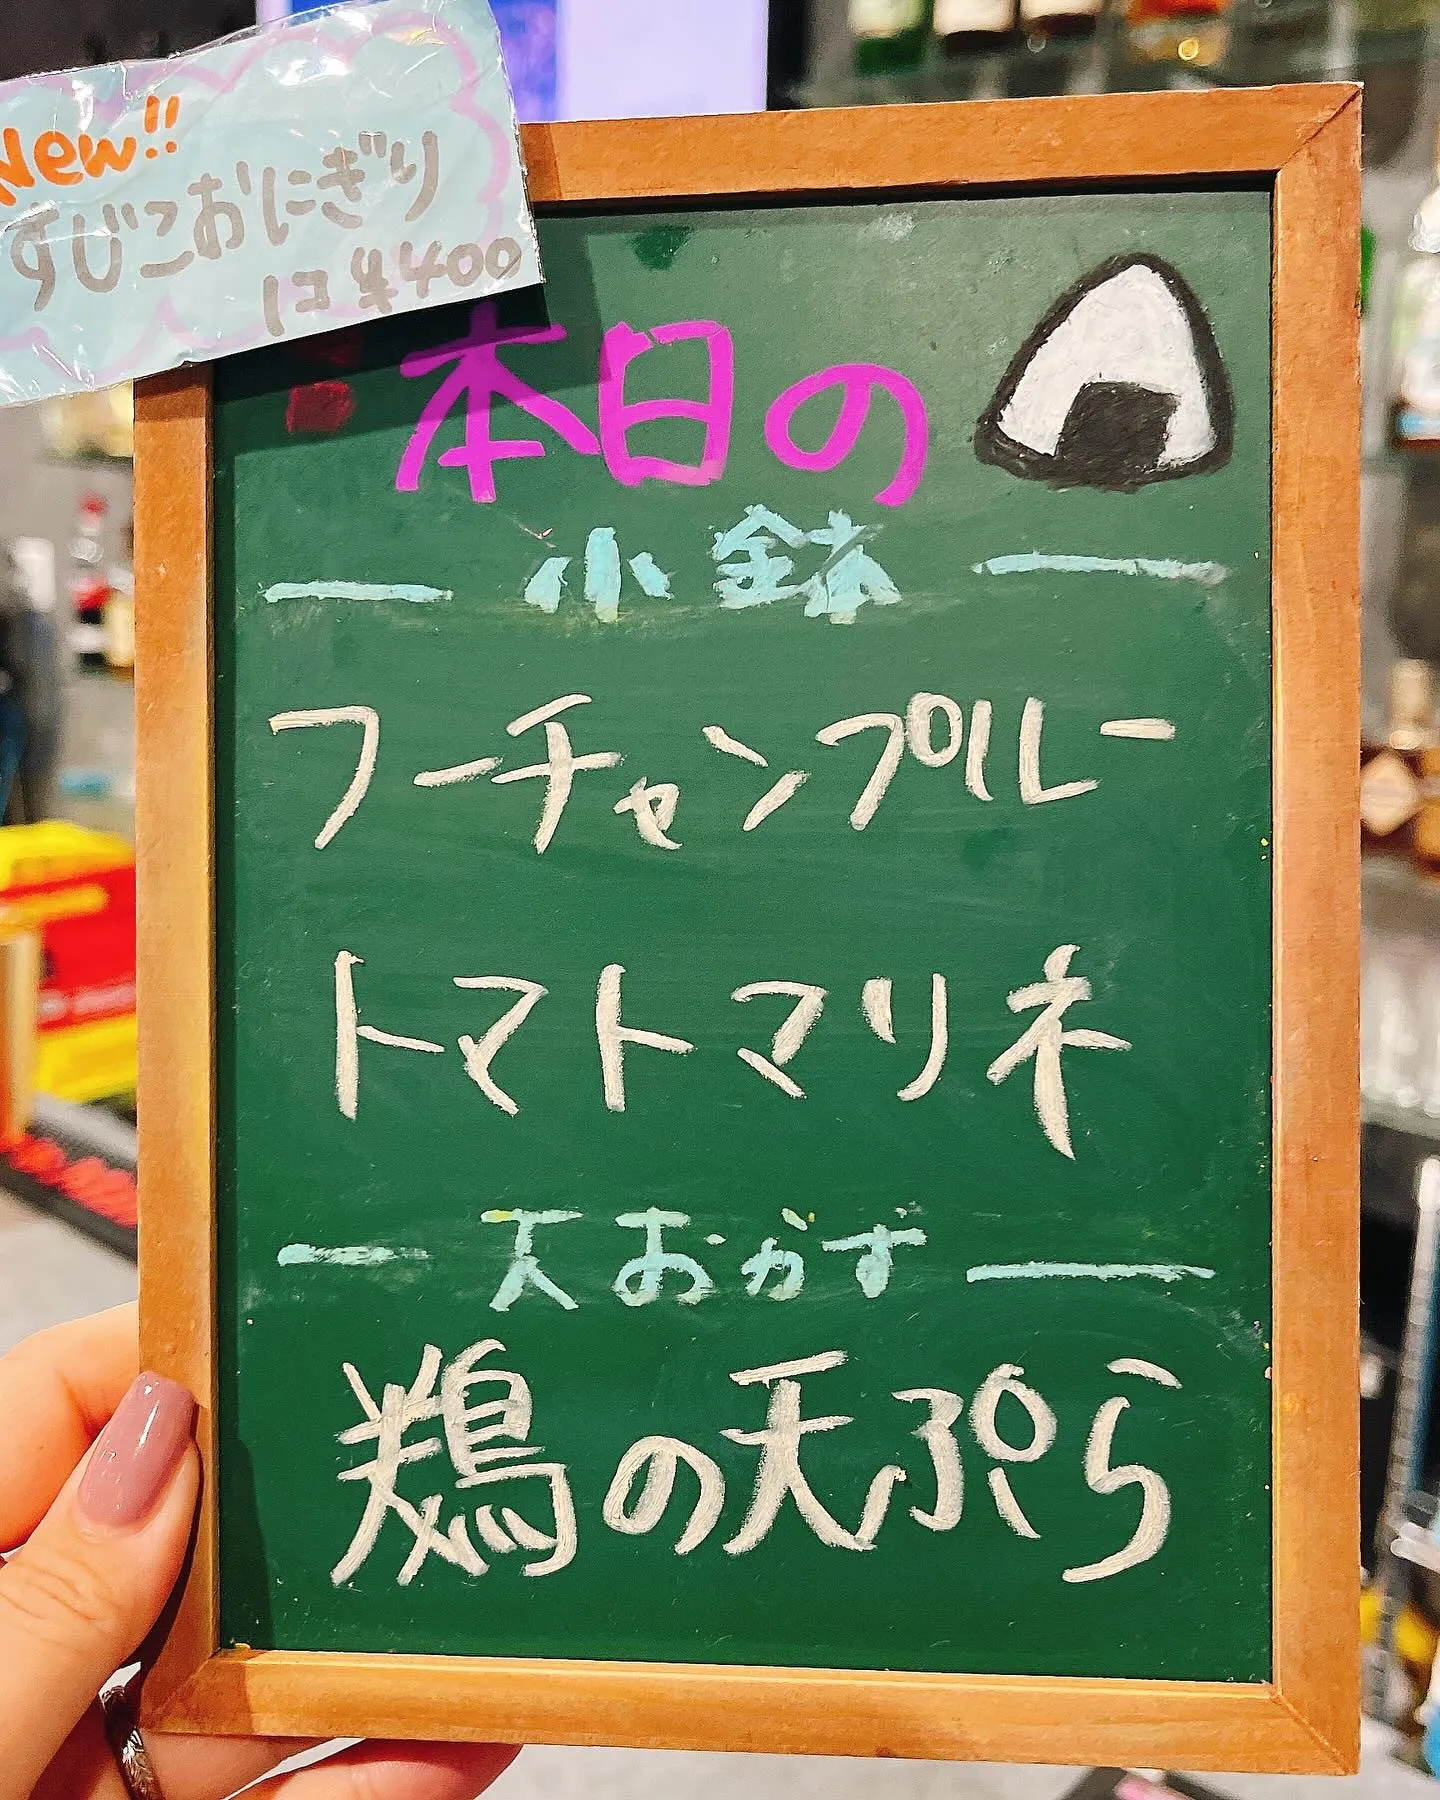 New!!
すじこおにぎり
1コ ¥400
本日の
小鉢
フーチャンプルー
トマトマリネ
大おかず
鶏の天ぷら